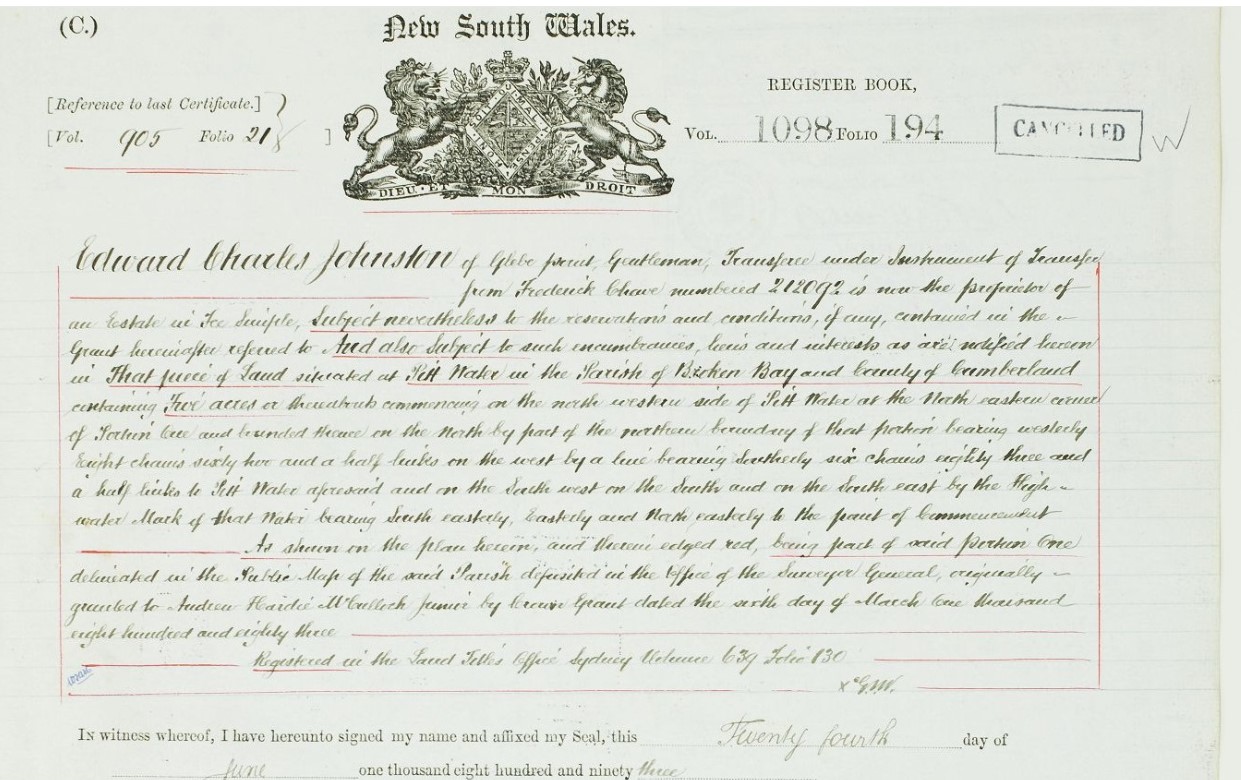 (C.)
New South Wales.
[Reference to last Certificate.]
[Vol. 905 Folio 218 ]
DIEU · ET MON DROIT
REGISTER BOOK,
Vol. 1098 Folio 194
CANCELLED
Edward Charles Johnston of Glebe point, Gentleman, Transferee under Instrument of Transfer
from Frederick Chave numbered 212092 is now the proprietor of
an Estate in Fee Simple, Subject nevertheless to the reservations and conditions, if any, contained in the
Grant hereinafter referred to And also Subject to such encumbrances, liens and interests as are notified hereon
in That piece of Land situated at Pitt Water in the Parish of Broken Bay and County of Cumberland
containing Five acres or thereabouts commencing on the north western side of Pitt Water at the North eastern corner
of Portion One and bounded thence on the North by part of the northern boundary of that portion bearing westerly
Eight chains sixty two and a half links on the west by a line bearing Southerly six chains eighty three and
a half links to Pitt Water aforesaid and on the South west on the South and on the South east by the High
water Mark of that Water bearing South easterly, Easterly and North easterly to the point of Commencement
As shown on the plan hereon, and therein edged red, being part of said Portion One
delineated in the Public Map of the said Parish deposited in the Office of the Surveyor General, originally
granted to Andrew Hardie McCulloch Junior by Crown Grant dated the sixth day of March One thousand
eight hundred and eighty three
Registered in the Land Titles Office Sydney Volume 639 Folio 130
In witness whereof, I have hereunto signed my name and affixed my Seal, this Twenty fourth day of
June one thousand eight hundred and ninety three